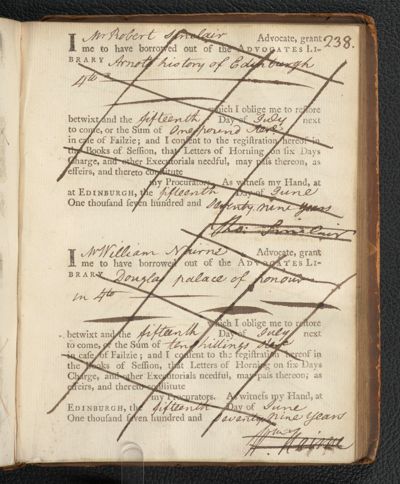 238.
I Mr Robert Sinclair Advocate, grant
me to have borrowed out of the ADVOCATES LI-
BRARY Arnots history of Edinburgh
4to
which I oblige me to restore
betwixt and the fifteenth Day of July next
to come, or the Sum of One pound Ster:
in case of Failzie; and I consent to the registration hereof in
the Books of Session, that Letters of Horning on six Days
Charge, and other Executorials needful, may pass thereon, as
effeirs, and thereto constitute
my Procurators. As witness my Hand, at
at EDINBURGH, the fifteenth Day of June
One thousand seven hundred and Seventy nine years
Sinclair
I Mr William Nairne Advocate, grant
me to have borrowed out of the ADVOCATES LI-
BRARY Douglas palace of honour
in 4to
which I oblige me to restore
betwixt and the fifteenth Day of July next
to come, or the Sum of ten shillings Ster
in case of Failzie; and I consent to the registration hereof in
the Books of Session, that Letters of Horning on six Days
Charge, and other Executorials needful, may pass thereon; as
effeirs, and thereto constitute
my Procurators. As witness my Hand, at
EDINBURGH, the fifteenth Day of June
One thousand seven hundred and Seventy nine years
Nairne